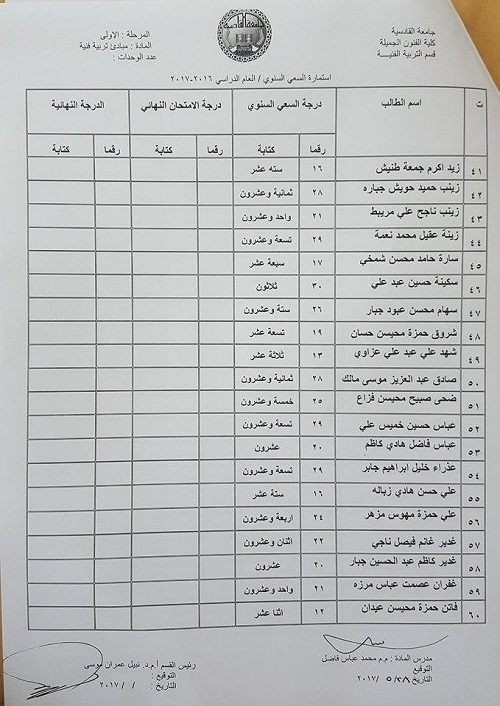 جامعة القادسية
كلية الفنون الجميلة
قسم التربية الفنيـــة
المرحلة : الاولى
المادة : مبادئ تربية فنية
عدد الوحدات :
استمارة السعي السنوي / العام الدراسي ٢٠١٦-٢٠١٧
ت اسم الطالب درجة السعي السنوي درجة الامتحان النهائي الدرجة النهائية
رقما كتابة رقما كتابة رقما كتابة
٤١ زيد اكرم جمعة طنيش ١٦ سته عشر
٤٢ زينب حميد حويش جباره ٢٨ ثمانية وعشرون
٤٣ زينب ناجح علي مريبط ٢١ واحد وعشرون
٤٤ زينة عقيل محمد نعمة ٢٩ تسعة وعشرون
٤٥ سارة حامد محسن شمخي ١٧ سبعة عشر
٤٦ سكينة حسين عبد علي ٣٠ ثلاثون
٤٧ سهام محسن عبود جبار ٢٦ ستة وعشرون
٤٨ شروق حمزة محيسن حسان ١٩ تسعة عشر
٤٩ شهد علي عبد علي عزاوي ١٣ ثلاثة عشر
٥٠ صادق عبد العزيز موسى مالك ٢٨ ثمانية وعشرون
٥١ ضحى صبيح محيسن فزاع ٢٥ خمسة وعشرون
٥٢ عباس حسين خميس علي ٢٩ تسعة وعشرون
٥٣ عباس فاضل هادي كاظم ٢٠ عشرون
٥٤ عذراء خليل ابراهيم جابر ٢٩ تسعة وعشرون
٥٥ علي حسن هادي زباله ١٦ ستة عشر
٥٦ علي حمزة مهوس مزهر ٢٤ اربعة وعشرون
٥٧ غدير غانم فيصل ناجي ٢٢ اثنان وعشرون
٥٨ غدير كاظم عبد الحسين جبار ٢٠ عشرون
٥٩ غفران عصمت عباس مرزه ٢١ واحد وعشرون
٦٠ فاتن حمزة محيسن عيدان ١٢ اثنا عشر
مدرس المادة : م.م محمد عباس فاضل
التوقيع
التاريخ : ٥/٢٨ /٢٠١٧
رئيس القسم أ.م.د. نبيل عمران موسى
التوقيع :
التاريخ : / / ٢٠١٧